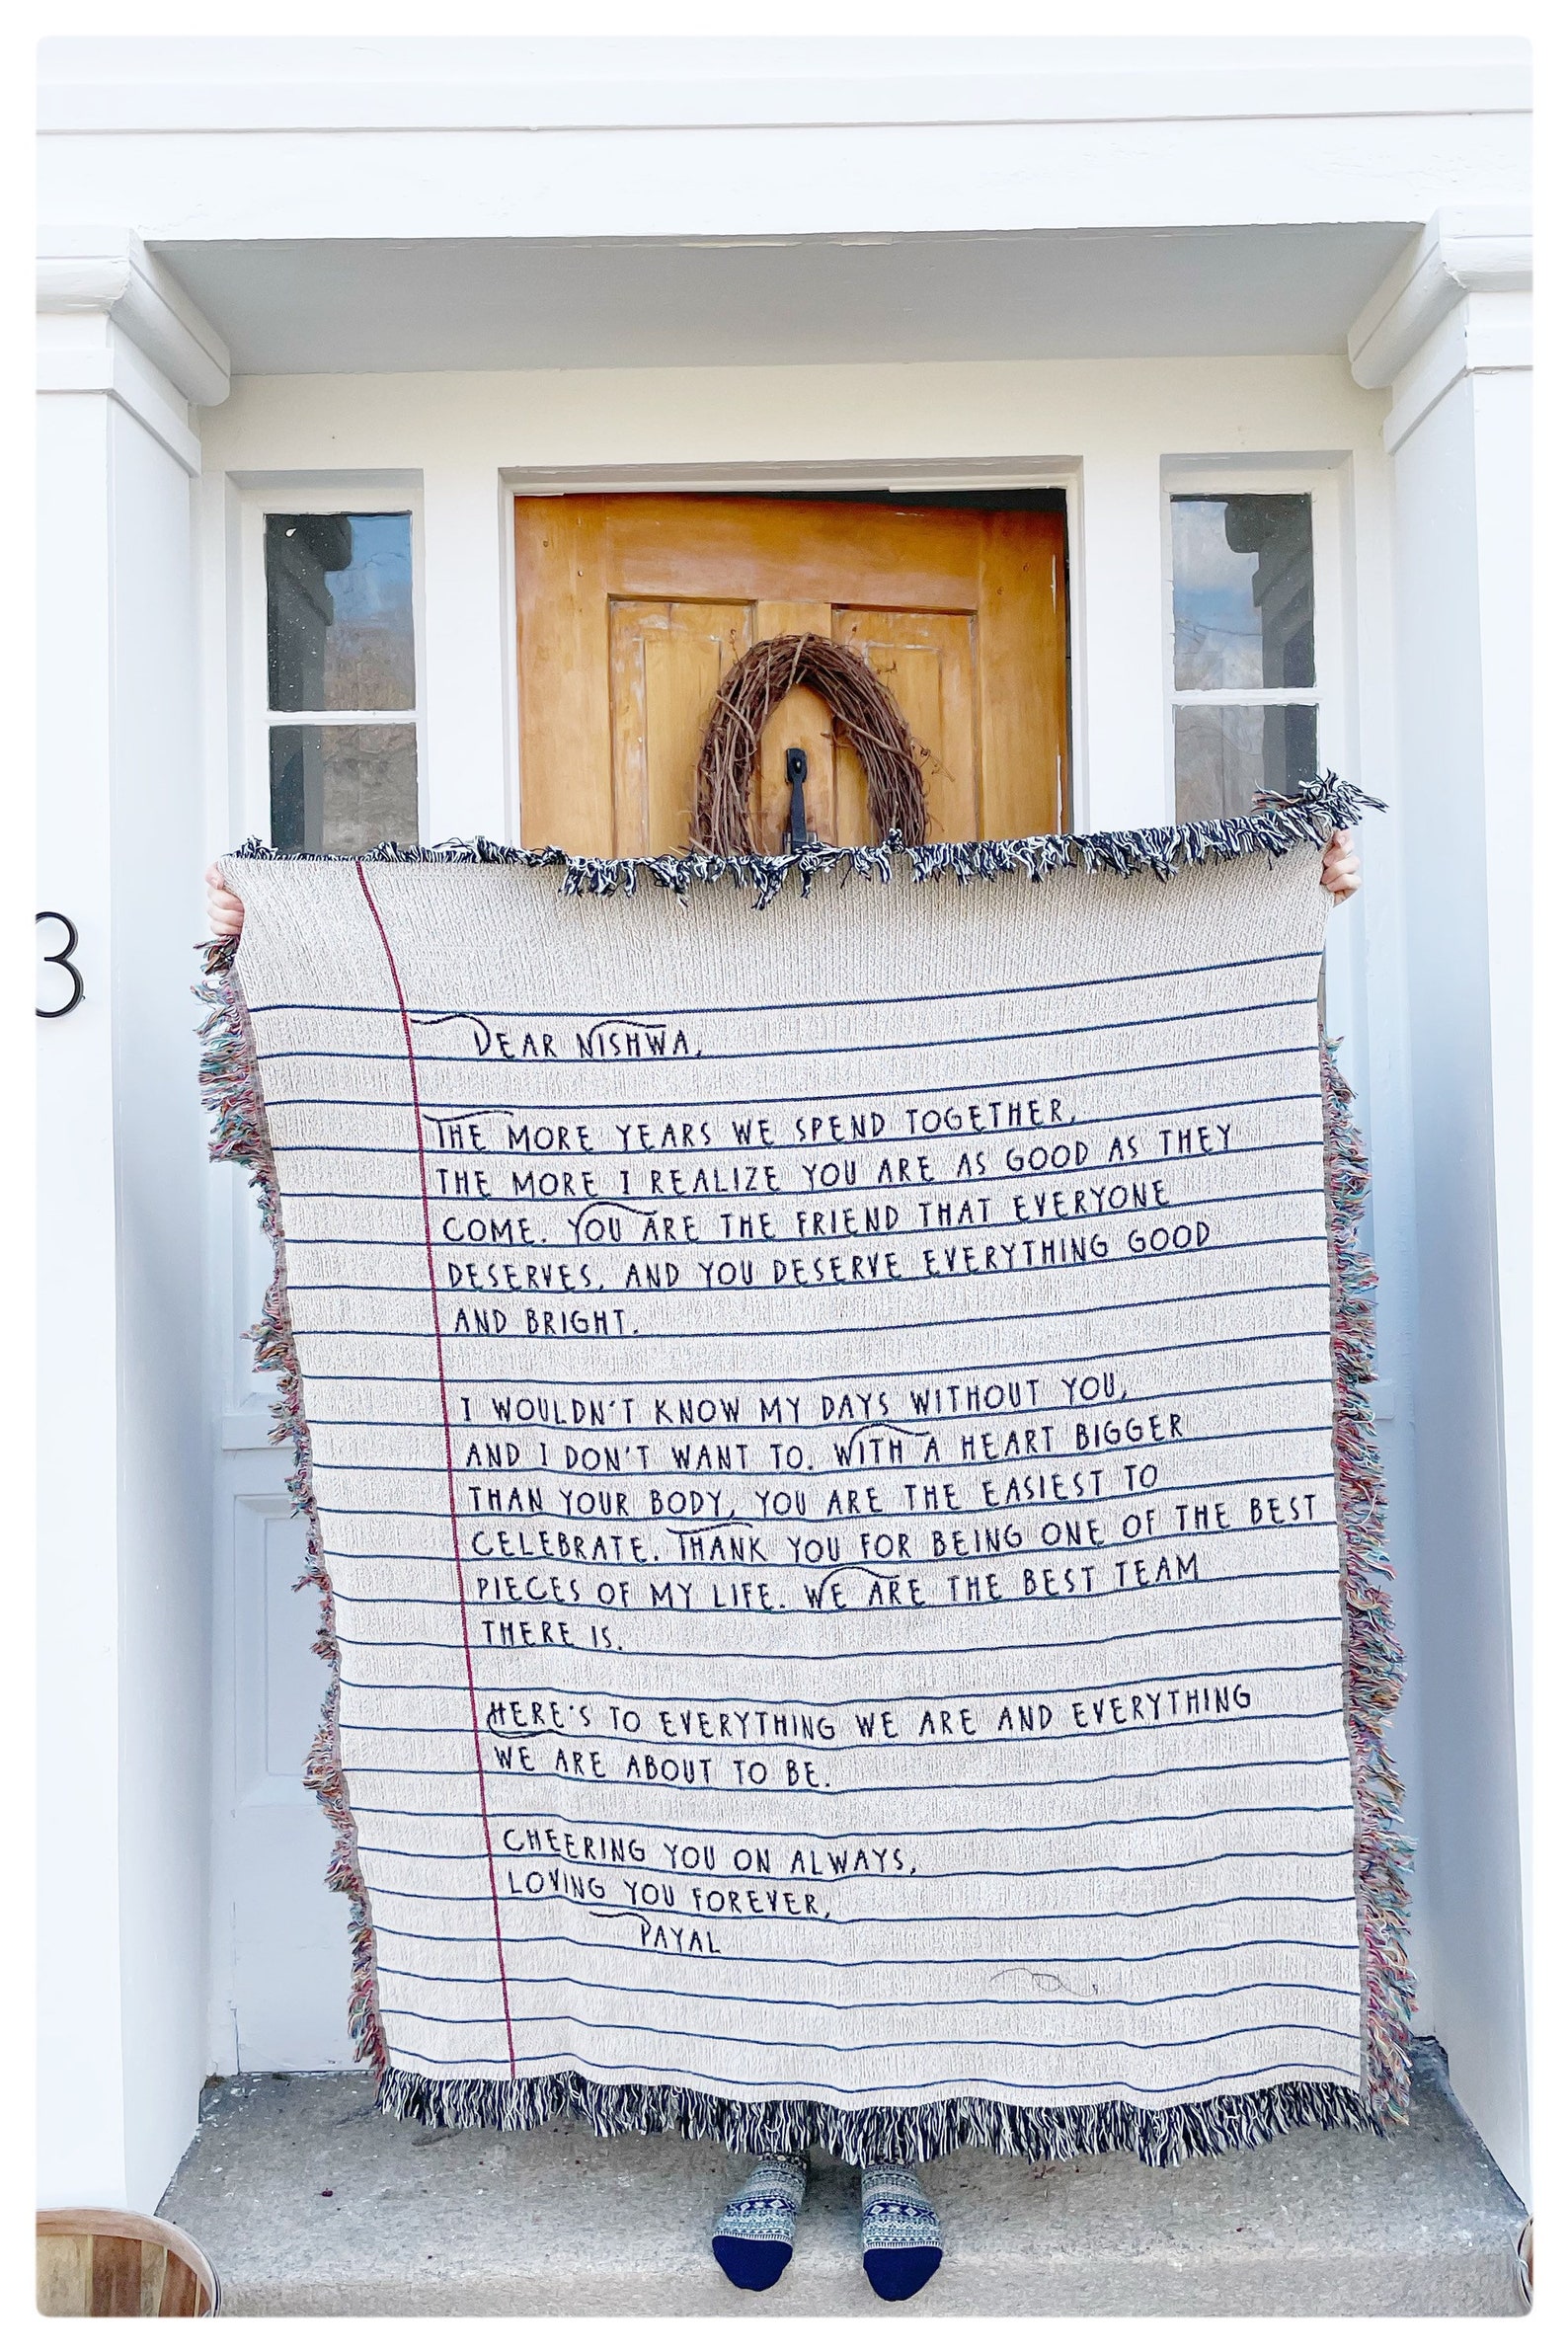 3
DEAR NISHWA,
THE MORE YEARS WE SPEND TOGETHER,
THE MORE I REALIZE YOU ARE AS GOOD AS THEY
COME. YOU ARE THE FRIEND THAT EVERYONE
DESERVES, AND YOU DESERVE EVERYTHING GOOD
AND BRIGHT.
I WOULDN'T KNOW MY DAYS WITHOUT YOU,
AND I DON'T WANT TO. WITH A HEART BIGGER
THAN YOUR BODY, YOU ARE THE EASIEST TO
CELEBRATE. THANK YOU FOR BEING ONE OF THE BEST
PIECES OF MY LIFE. WE ARE THE BEST TEAM
THERE IS.
HERE'S TO EVERYTHING WE ARE AND EVERYTHING
WE ARE ABOUT TO BE.
CHEERING YOU ON ALWAYS,
LOVING YOU FOREVER,
PAYAL